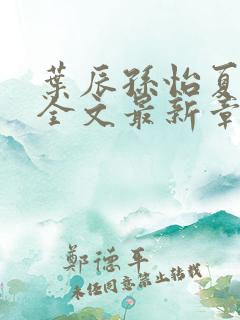 葉辰孫怡夏
全文最新章
鄭德平
未经同意禁止转载